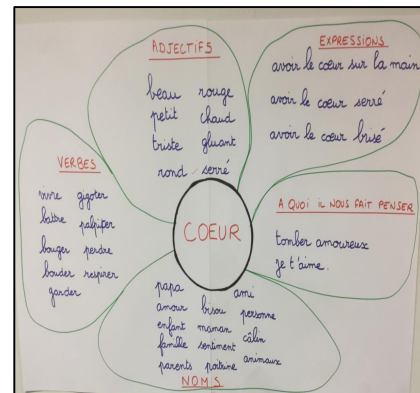 ADJECTIFS
beau rouge
petit chaud
triste gluant
rond serré
EXPRESSIONS
avoir le cœur sur la main
avoir le cœur serré
avoir le cœur brisé
VERBES
vivre gigoter
battre palpiter
bouger perdre
bouder respirer
garder
COEUR
A QUOI IL NOUS FAIT PENSER
tomber amoureux
je t'aime.
papa ami
amour bisou personne
enfant maman
famille sentiment câlin
parents poitrine animaux
NOMS